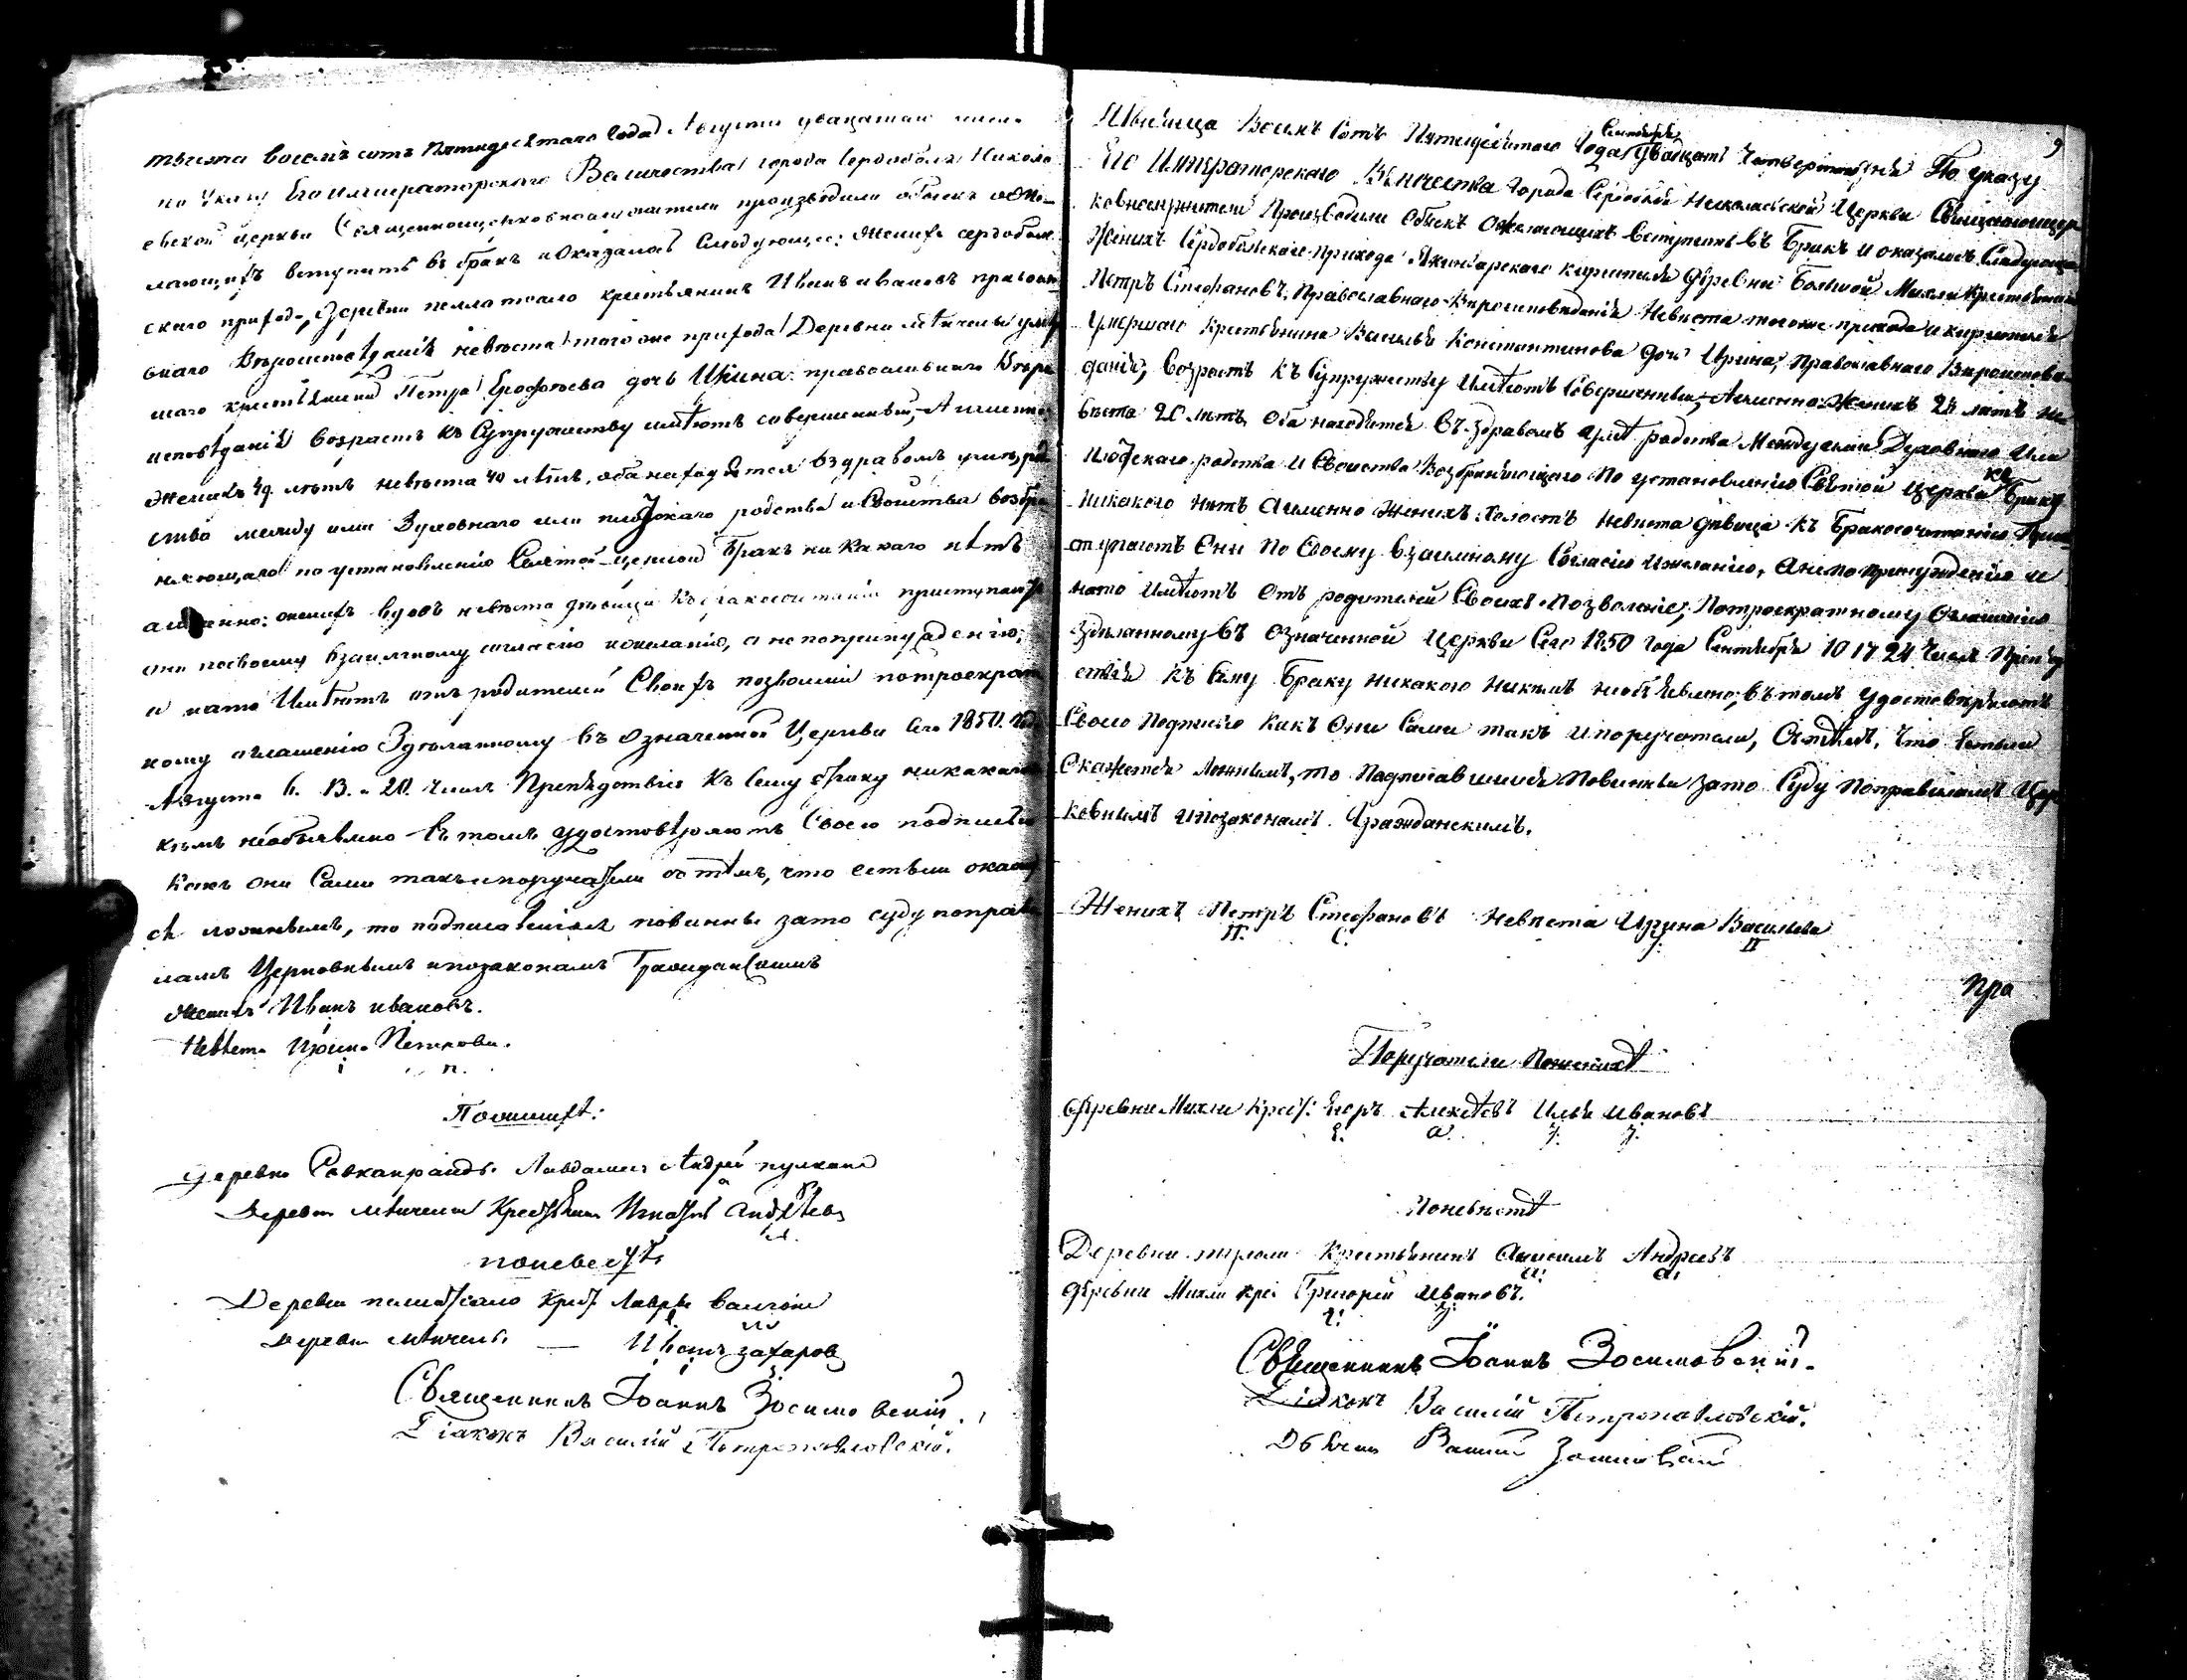 тысяча восемь сотъ пятидесятаго года Августа двадцатаго числа
по Указу Его императорскаго Величества города Сердоболя Николя
евской церкви Священноцерковнослужители производили обыскъ оже
лающихъ вступить въ бракъ и оказалось следующее: Женихъ сердоболь
скаго прихода, Деревни крестьянинъ Иванъ ивановъ православ
наго Вѣроисповѣданія невѣста того же прихода Деревни умер
шаго крестьянина Петра Ерофѣева дочь Ирина православнаго Вѣро
исповѣданія возрастъ къ Супружеству имѣютъ совершенный, А именно
Женихъ лѣтъ невѣста 40 лѣтъ, оба находятся въ здравомъ умѣ, род
ства между ими Духовнаго или плотскаго родства и Свойства возбра
няющаго по установленію Святой церкви бракъ никакаго нѣтъ
а именно: женихъ вдовъ невѣста девица къ бракосочетанію приступаютъ
они по своему взаимному согласію и желанію, а не по принужденію,
и на то Имѣютъ отъ родителей Своихъ позволеніе по троекрат
ному оглашенію Здѣланному въ означенной Церкви Сего 1850. года
Августа 6. 13. и 20. числъ Препядствія къ Сему браку никакаго
кѣмъ необъявлено въ томъ удостовѣряютъ Своею подписью
какъ они Сами такъ и поручатели съ тѣмъ, что естьли окаже
ся ложнымъ, то подписавшіяся повинны за то суду по прави
ламъ Церковнымъ и по законамъ Гражданскимъ
Женихъ Иванъ ивановъ.
Невѣста Ирина Петрова.
і п.
Поженихѣ:
деревни Андрей
Деревни Крестьянинъ Игнатій Андрѣевъ
поневестѣ
Деревни Крест. Лавръ
Деревни — Иванъ Захаровъ
Священникъ Іоаннъ Зосимовскій.
Діаконъ Василій Петропавловскій.
9
Тысяча Восемь Сотъ Пятидесятаго Года Сентября двадцать Четвертаго дня По указу
Его Императорскаго Величества Города Сердоболя Николаевской Церкви Священноцер
ковнослужители Производили Обыскъ Ожелающихъ Вступить въ Бракъ и оказалось Следующее
Женихъ Сердобольскаго прихода Якимварскаго кирхшпиля Деревни Большой Михли Крестьянинъ
Петръ Стефановъ, Православнаго Вероисповеданія Невѣста тогоже прихода и кирхшпиля
умершаго крестьянина Василья Константинова дочь Ирина, Православнаго Вероисповѣ
данія; Возрастъ къ Супружеству Имѣютъ Совершенный; Аименно: Женихъ 24 летъ не
вѣста 20 летъ, Оба находятся въ здравомъ умѣ родства Между ими Духовнаго Или
Плотскаго родства и Свойства Возбраняющаго По установленію Святой Церкви къ Браку
Никакого Нетъ Аименно Женихъ Холостъ Невѣста девица къ Бракосочетанію При
ступаютъ Они По Своему Взаимному Согласію и желанію, Ане по принужденію и
нато Имѣютъ Отъ родителей Своихъ позволеніе; Потроекратному Оглашенію
зделанному въ Означенной Церкви Сего 1850 года Сентября 10 17 24 Числъ Препяд
ствія къ Сему Браку никакого никемъ необъявлено; въ томъ удостоверяютъ
Своею Подписью Какъ Они Сами такъ и поручатели, Сътѣмъ, Что Естьли
Окажется Ложнымъ, то Подписавшіися Повинны За то Суду По правиламъ Цер
ковнымъ и по законамъ Гражданскимъ.
Женихъ Петръ Стефановъ Невѣста Ирина Васильева
П. С. П
пра
Поручатели Поженихѣ
Деревни Михли Крест: Егоръ Алексѣевъ Илья Ивановъ
Е. а.
Поневѣстѣ
Деревни Крестьянинъ Анисимъ Андреевъ
а. а.
Деревни Михли кре: Григорей Ивановъ.
Священникъ Іоаннъ Зосимовскій.
Діаконъ Василій Петропавловскій.
Дьячекъ